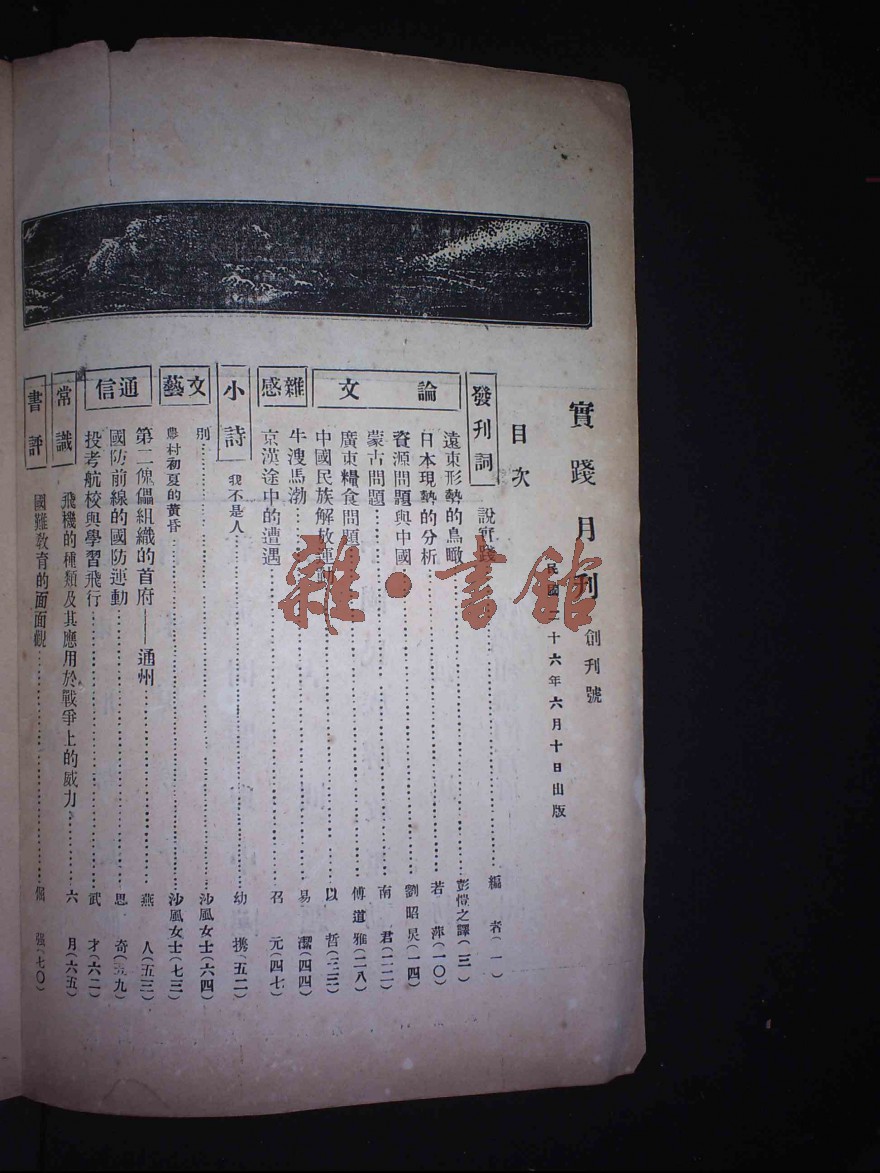 實踐月刊 創刊號
民國二十六年六月十日出版
目次
發刊詞
說實踐……編者(一)
論文
遠東形勢的鳥瞰……彭愷之譯(三)
日本現勢的分析……若萍(一〇)
資源問題與中國……劉昭炅(一四)
蒙古問題……南君(二二)
廣東糧食問題……傅道雅(二八)
中國民族解放運動……以哲(三三)
雜感
牛溲馬渤……易潔(四四)
京漢途中的遭遇……召元(四七)
小詩
我不是人……幼携(五二)
文藝
別……沙風女士(六四)
農村初夏的黃昏……沙風女士(七三)
通信
第二傀儡組織的首府——通州……燕人(五三)
國防前線的國防運動……思奇(五九)
投考航校與學習飛行……武才(六二)
常識
飛機的種類及其應用於戰爭上的威力……六月(六五)
書評
國難教育的面面觀……倔強(七〇)
雜·書館